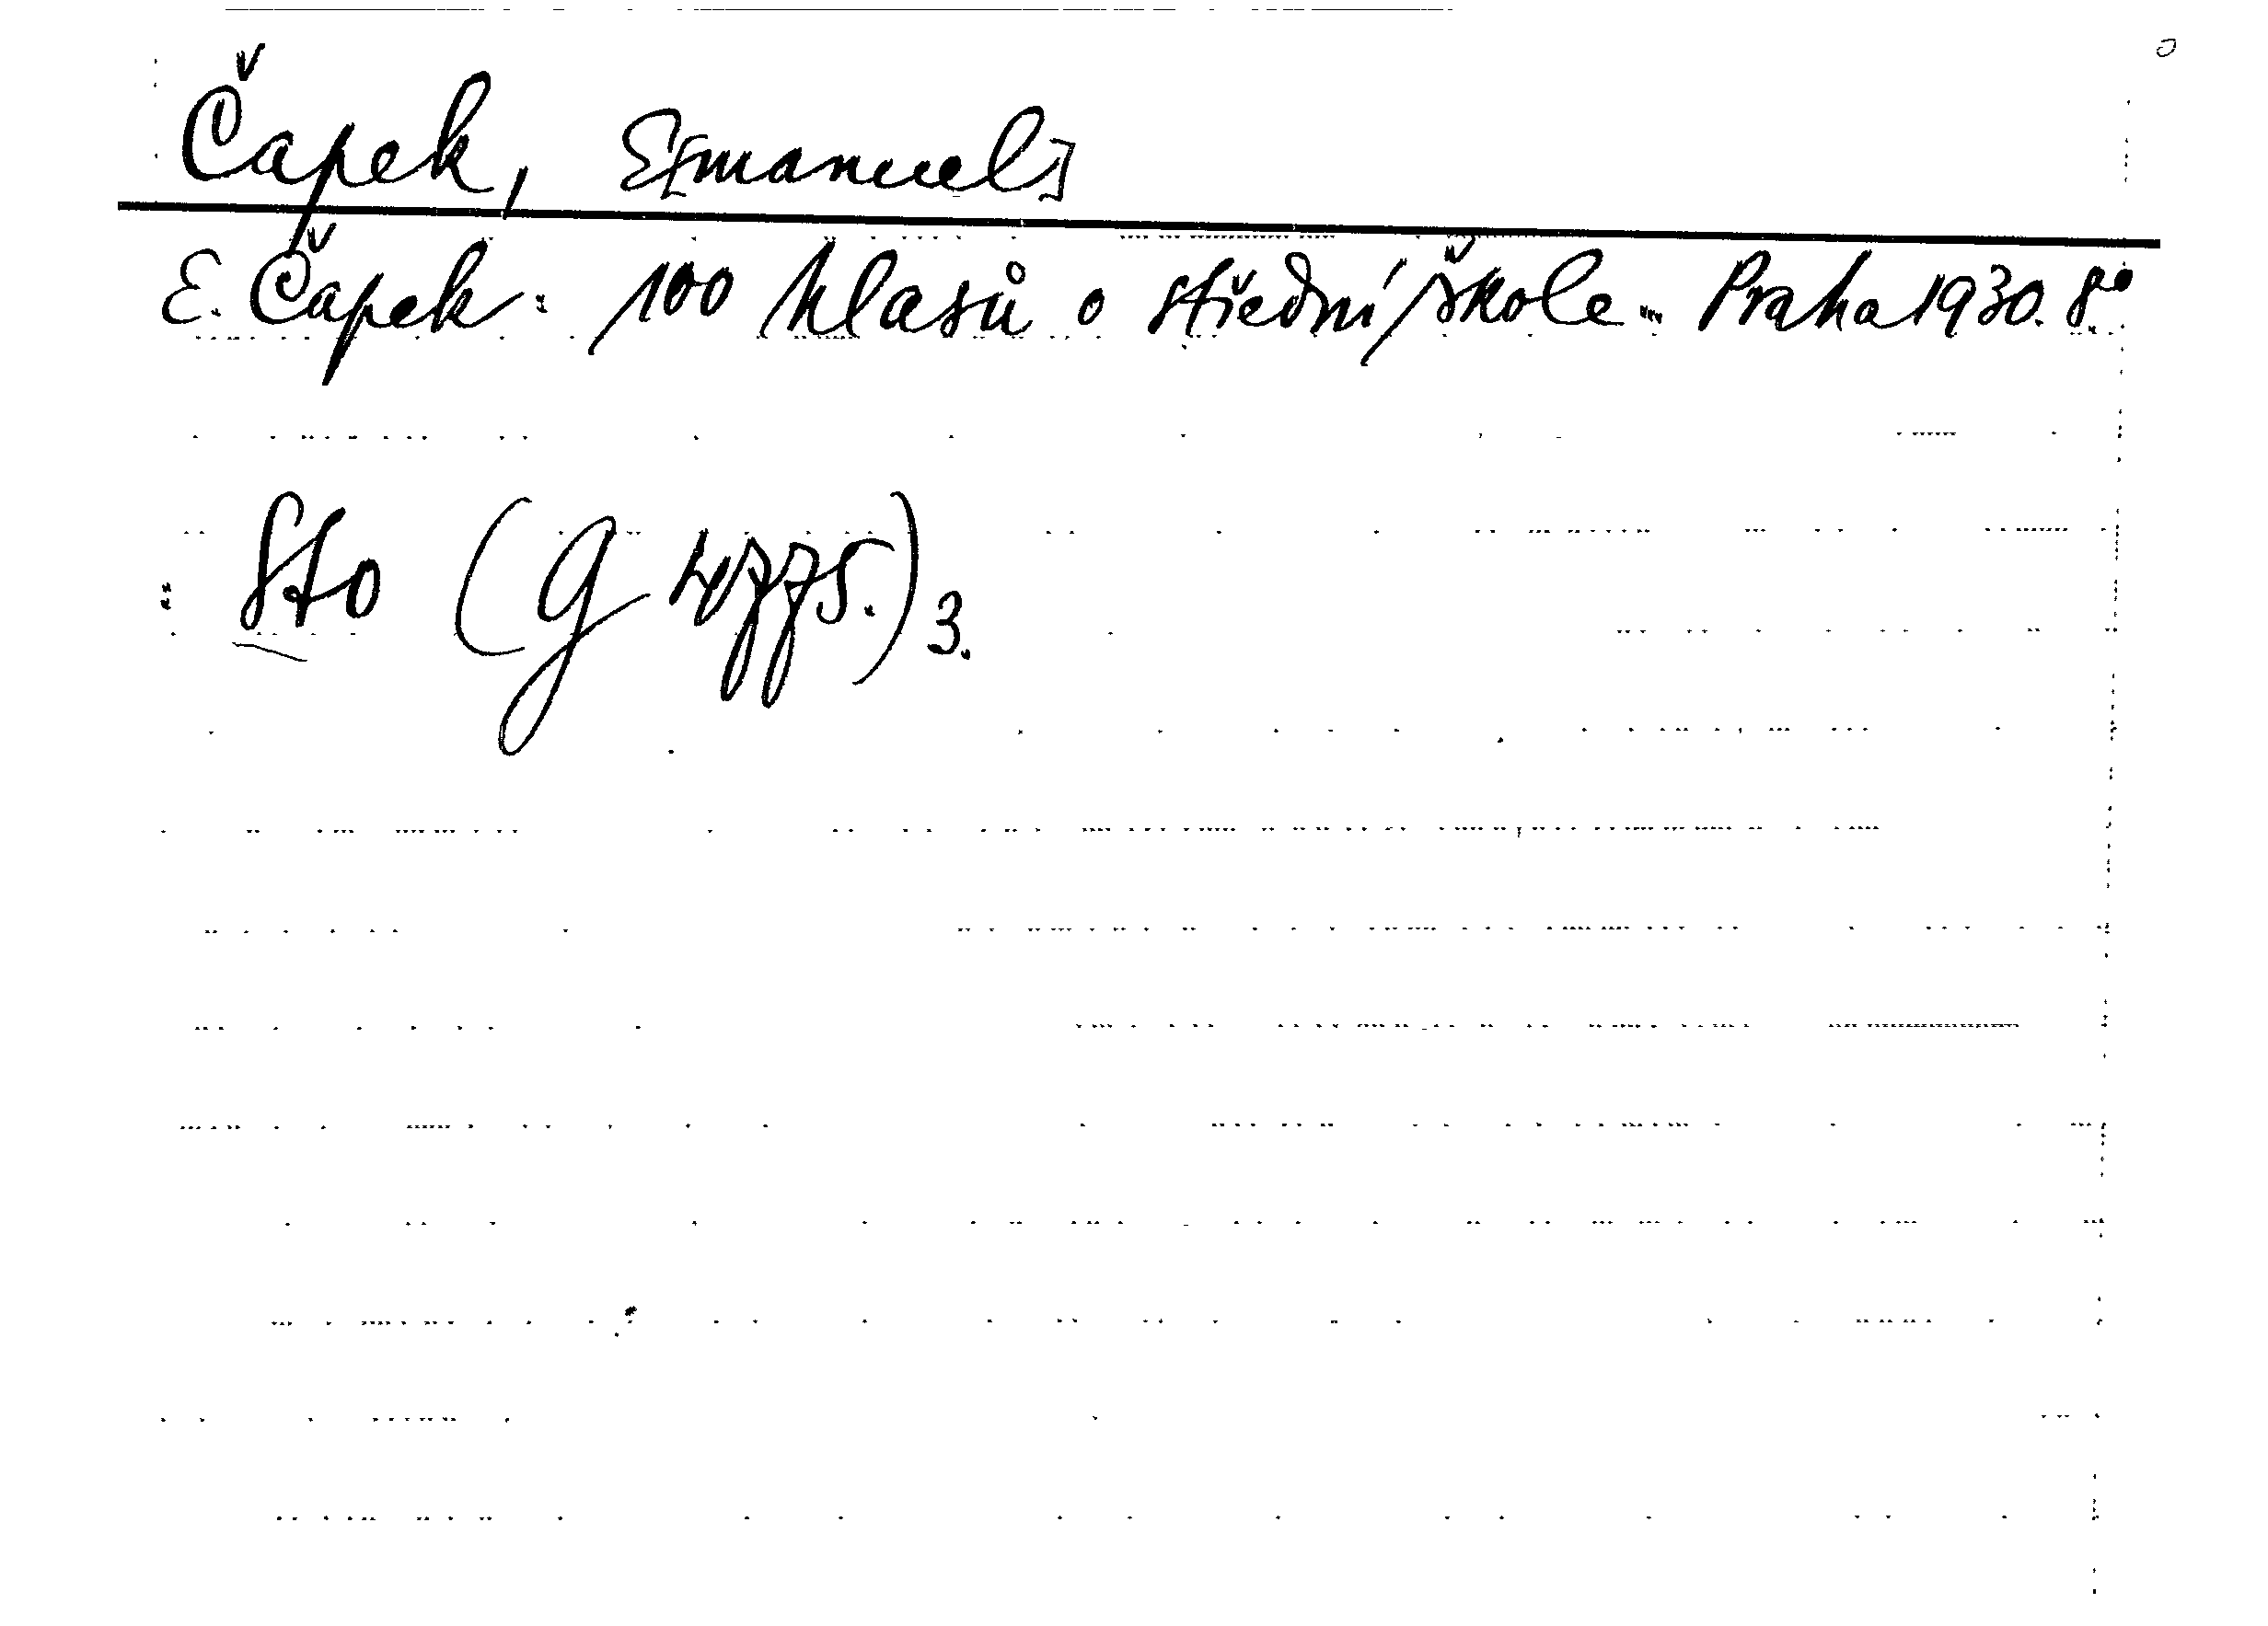 Čapek, E[manuel]
E. Čapek: 100 hlasů o střední škole... Praha 1930. 8.°
Sto (G 4775.)3.